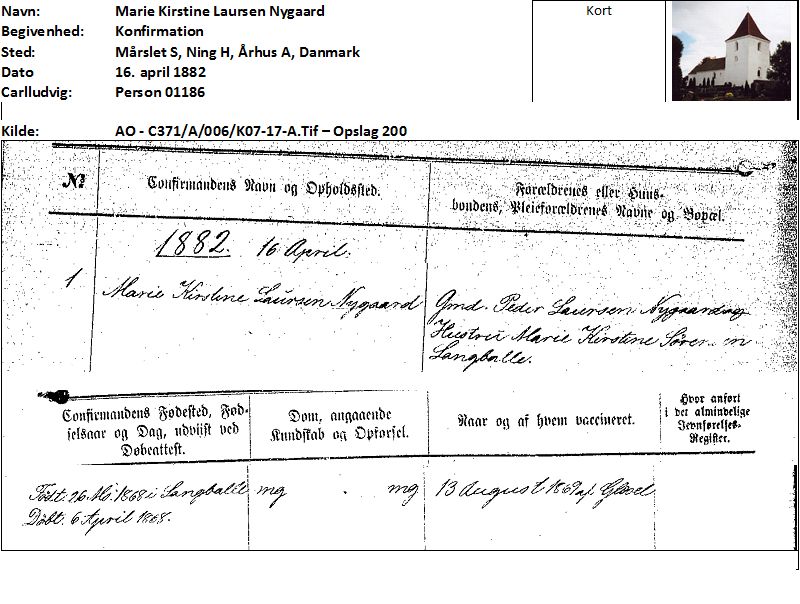 Navn: Marie Kirstine Laursen Nygaard
Begivenhed: Konfirmation
Sted: Mårslet S, Ning H, Århus A, Danmark
Dato 16. april 1882
Carlludvig: Person 01186
Kilde: AO - C371/A/006/K07-17-A.Tif – Opslag 200
Kort
№ Confirmandens Navn og Opholdssted. Forældrenes eller Huus-
bondens, Pleieforældrenes Navne og Bopæl.
1882. 16 April.
1 Marie Kirstine Laursen Nygaard Gmd. Peder Laursen Nygaard og
Hustru Marie Kirstine Søren
Langballe.
Confirmandens Fødested, Fød-
selsaar og Dag, udviist ved
Døbeattest.
Dom, angaaende
Kundskab og Opførsel.
Naar og af hvem vaccineret.
Hvor anført
i det almindelige
Jevnførelses-
Register.
Født. 26 1868 i Langballe mg . mg 13 August 1869 af
Døbt. 6 April 1868.